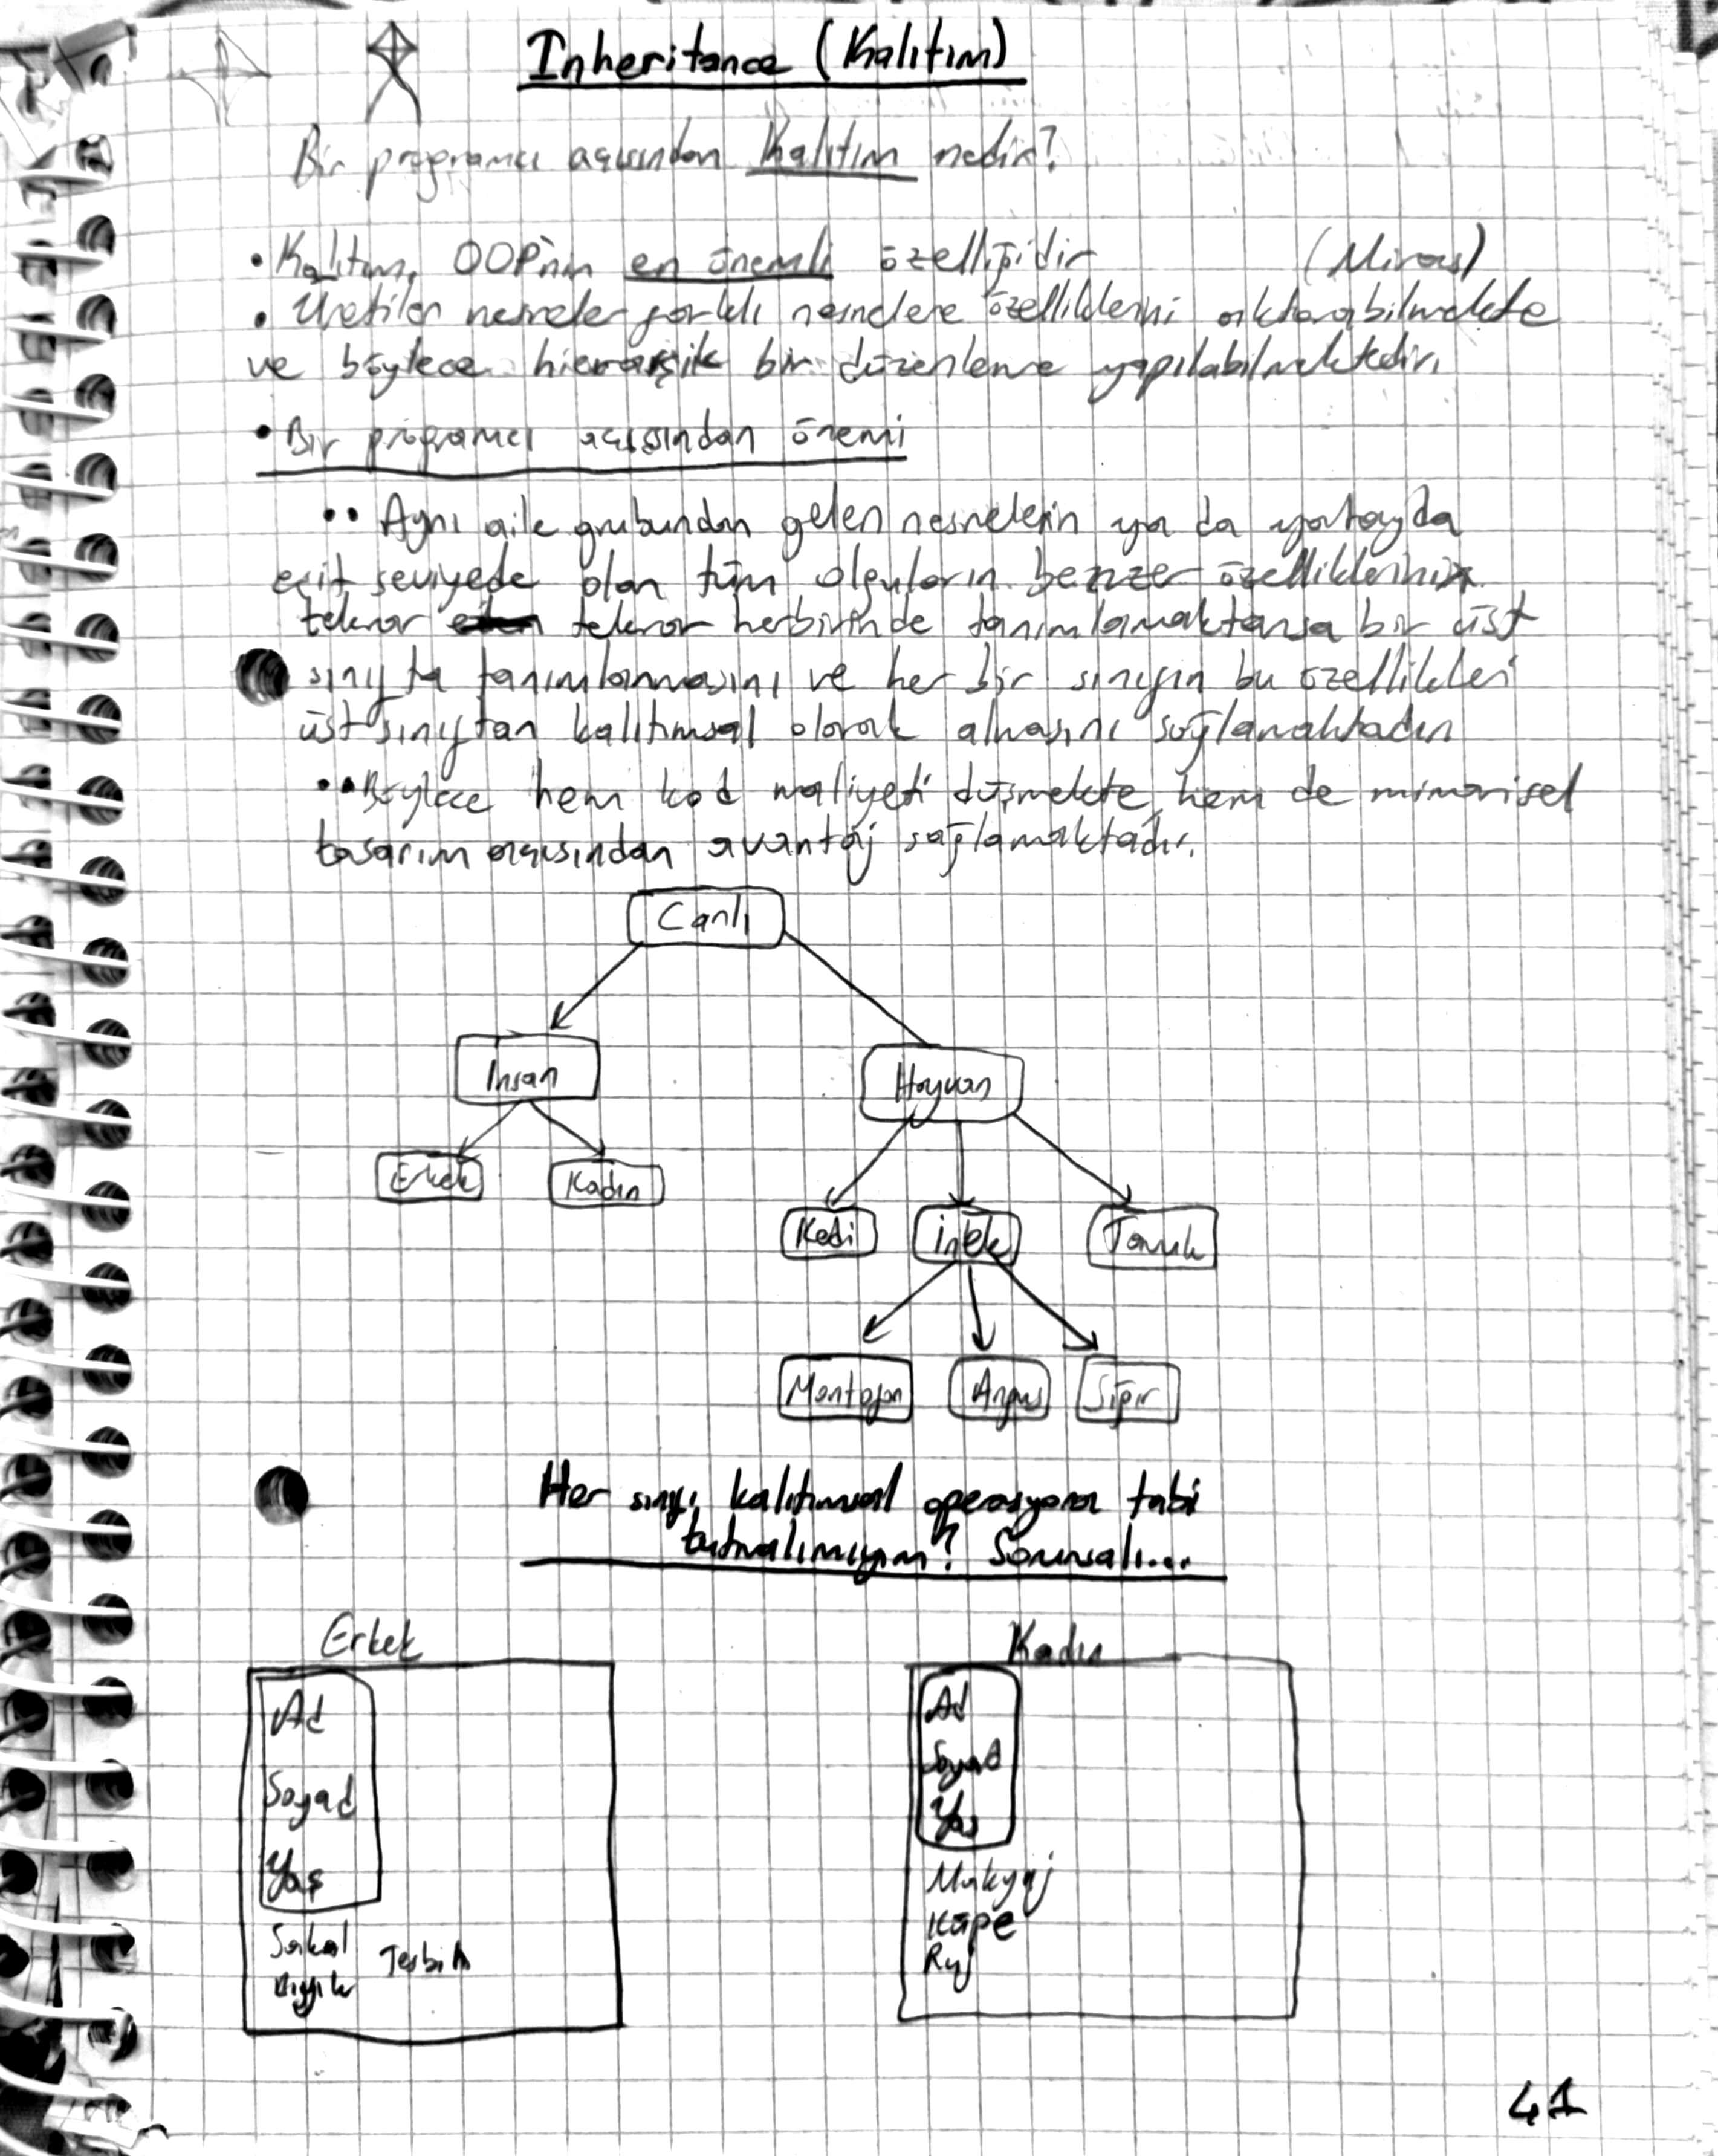 Inheritance (Kalıtım)
Bir programcı açısından Kalıtım nedir?
• Kalıtım, OOP'nin en önemli özelliğidir (Miras)
• Üretilen nesneler farklı nesnelere özelliklerini aktarabilmekte
ve böylece hierarşik bir düzenleme yapılabilmektedir.
• Bir programcı açısından önemi
•• Aynı aile grubundan gelen nesnelerin ya da yatayda
eşit seviyede olan tüm olguların benzer özelliklerini
tekrar tekrar herbirinde tanımlamaktansa bir üst
sınıfta tanımlanmasını ve her bir sınıfın bu özellikleri
üst sınıftan kalıtımsal olarak almasını sağlamaktadır
•• Böylece hem kod maliyeti düşmekte, hem de mimarisel
tasarım açısından avantaj sağlamaktadır.
Canlı
İnsan Hayvan
Erkek Kadın
Kedi İnek Tavuk
Montofon Angus
Her sınıfı kalıtımsal operasyona tabi
tutmalımıyım? Sorunsalı...
Erkek Kadın
Ad Ad
Soyad Soyad
Yaş Yaş
Sakal Tesbih Makyaj
Bıyık Küpe
Ruj
41